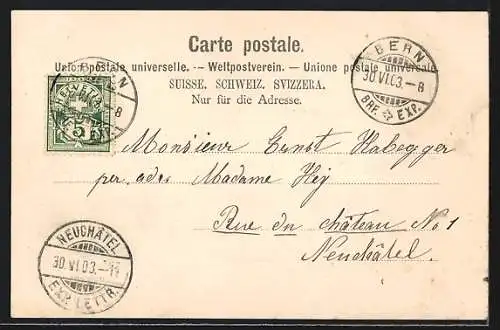 Carte postale.
Union postale universelle. -- Weltpostverein. -- Unione postale universale
SUISSE. SCHWEIZ. SVIZZERA.
Nur für die Adresse.
BERN
30.VI.03.-8
BRF. EXP.
HELVETIA
5
8
Monsieur Ernst Habegger
per. adr. Madame Hey
Rue du château No 1
Neuchâtel
NEUCHÂTEL
30.VI.03.-11
EXP. LETTR.